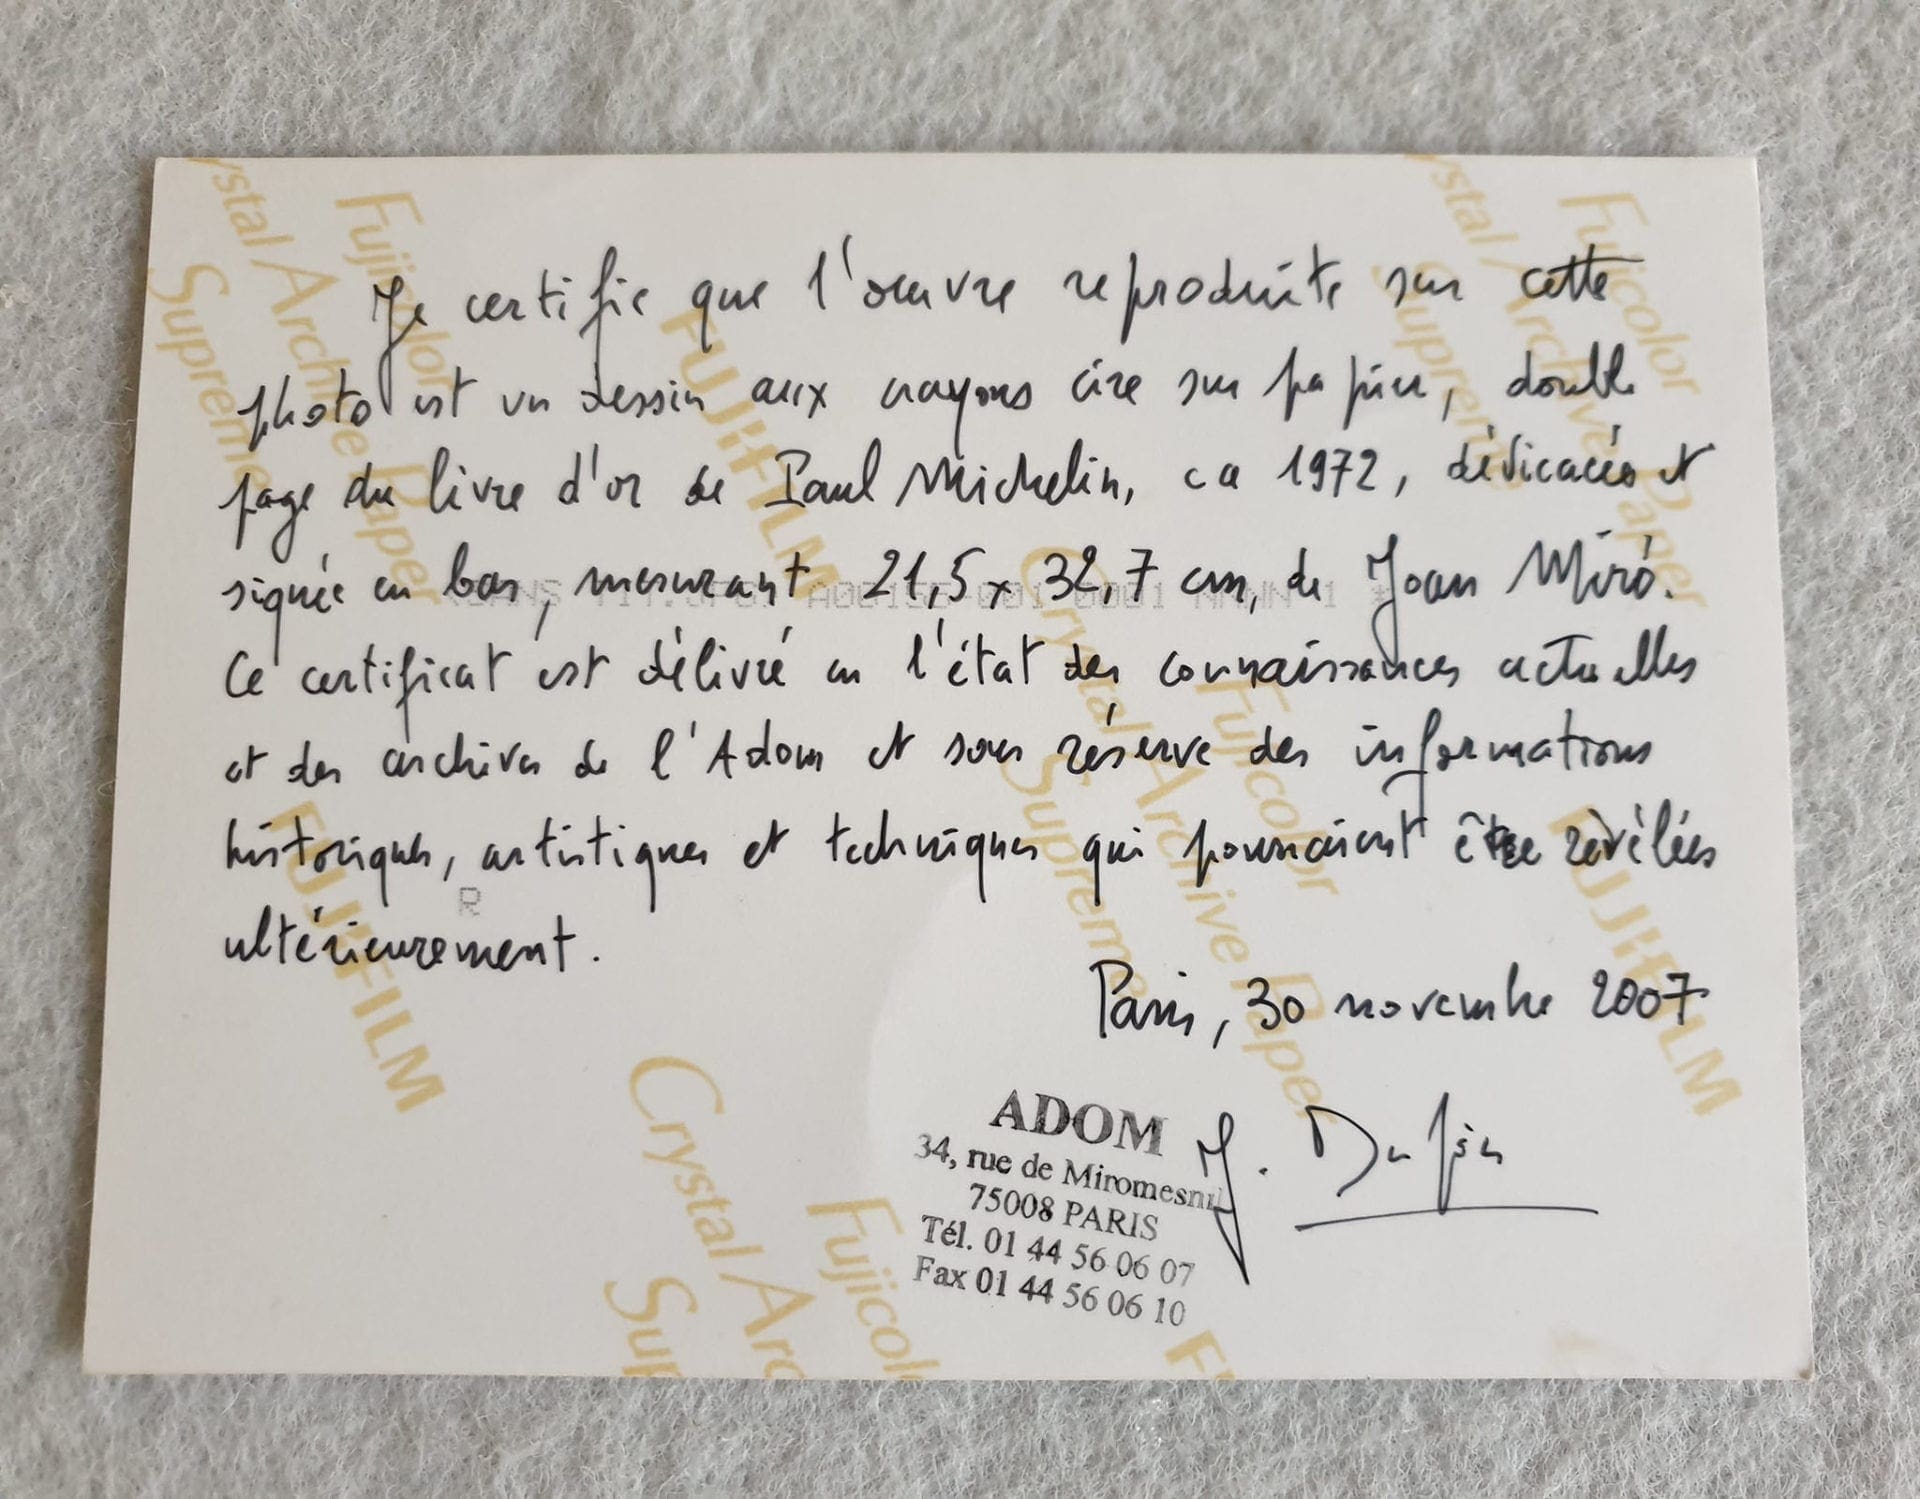 Je certifie que l'œuvre reproduite sur cette
photo est un dessin aux crayons cire sur papier, double
page du livre d'or de Paul Michelin, ca 1972, dédicacée et
signée en bas, mesurant 21,5 x 32,7 cm, de Joan Miró.
Ce certificat est délivré en l'état des connaissances actuelles
et des archives de l'Adom et sous réserve des informations
historiques, artistiques et techniques qui pourraient être révélées
R
ultérieurement.
Paris, 30 novembre 2007
ADOM
34, rue de Miromesnil
75008 PARIS
Tél. 01 44 56 06 07
Fax 01 44 56 06 10
J. Dupin
Fujicolor
Crystal Archive Paper
Supreme
FUJIFILM
Fujicolor
Crystal Archive Paper
Supreme
FUJIFILM
Fujicolor
Crystal Archive Paper
Supreme
FUJIFILM
Fujicol
Crystal Arc
Sup